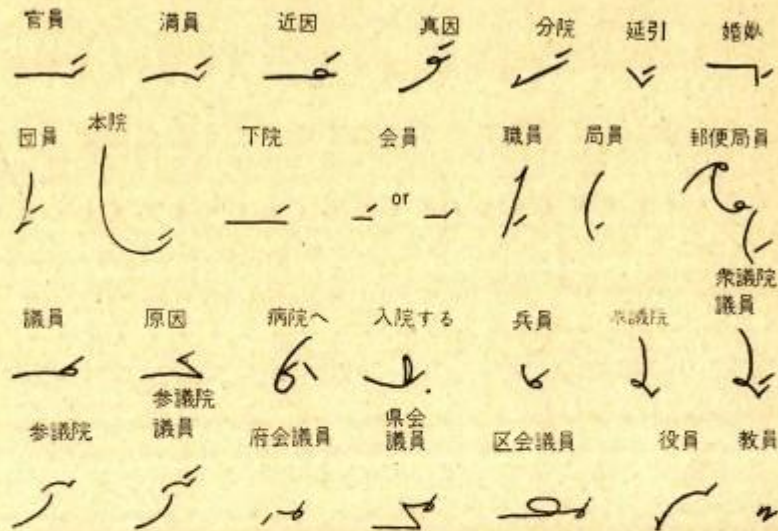 官員 満員 近因 真因 分院 延引 婚姻
団員 本院 下院 会員 職員 局員 郵便局員
or
議員 原因 病院へ 入院する 兵員 衆議院 衆議院
議員
参議院 参議院
議員 府会議員 県会
議員 区会議員 役員 教員